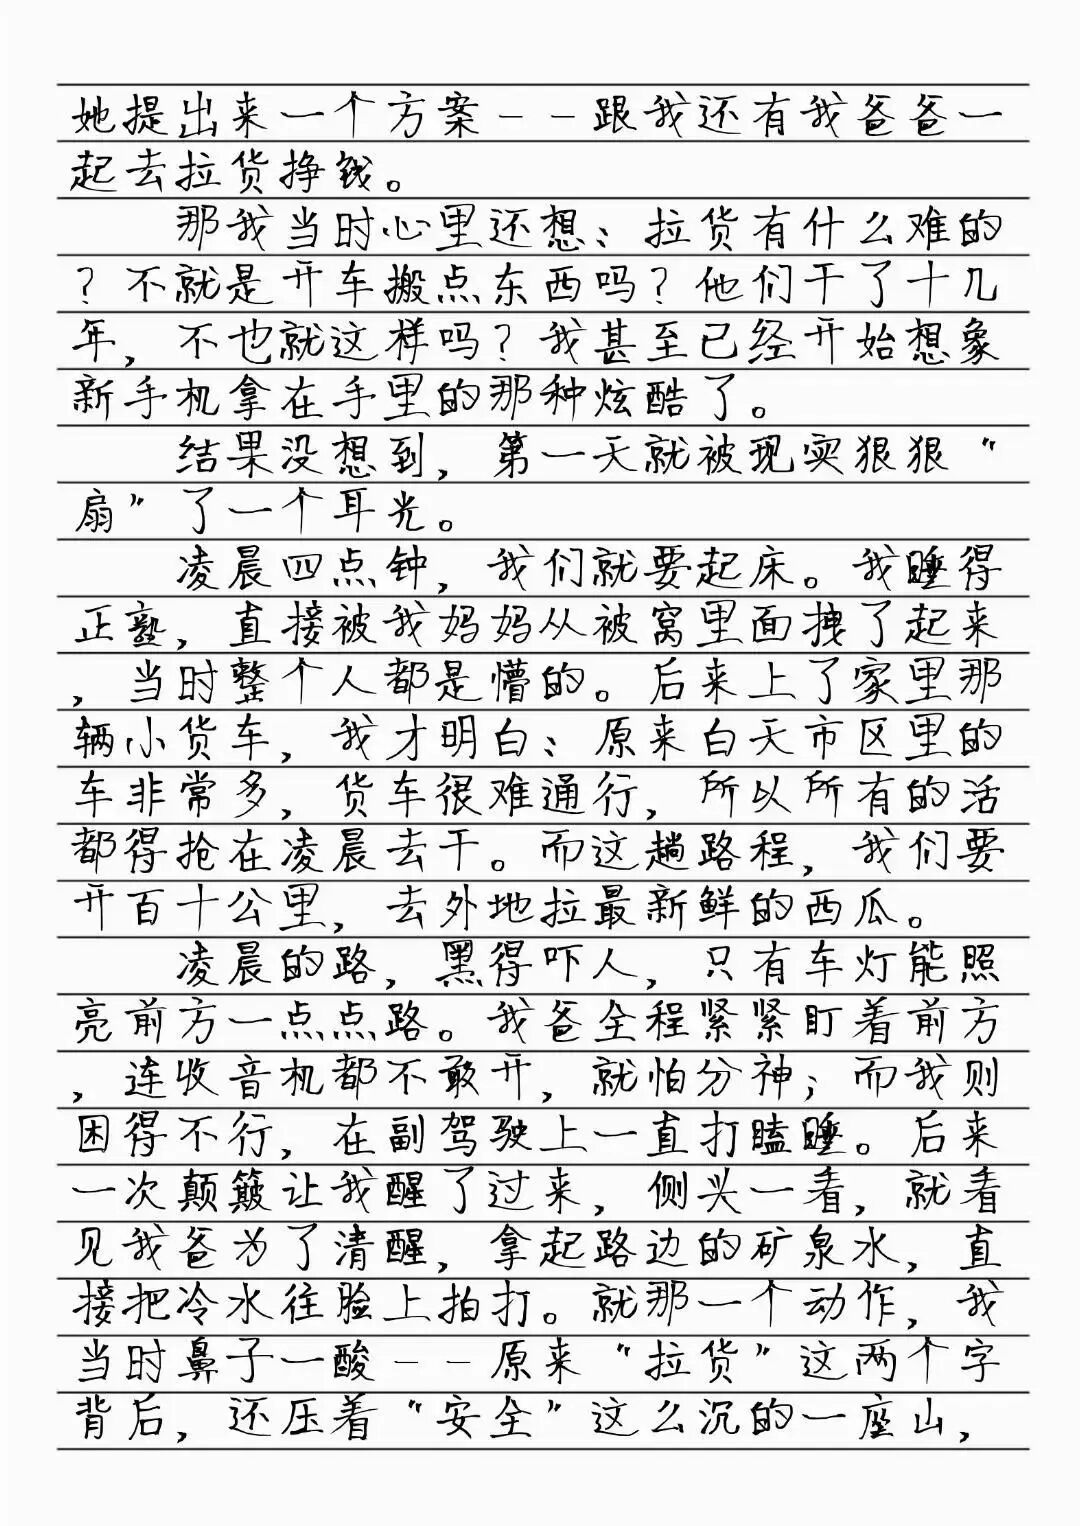 她提出来一个方案--跟我还有我爸爸一
起去拉货挣钱。
那我当时心里还想：拉货有什么难的
？不就是开车搬点东西吗？他们干了十几
年，不也就这样吗？我甚至已经开始想象
新手机拿在手里的那种炫酷了。
结果没想到，第一天就被现实狠狠“
扇”了一个耳光。
凌晨四点钟，我们就要起床。我睡得
正熟，直接被我妈妈从被窝里面拽了起来
，当时整个人都是懵的。后来上了家里那
辆小货车，我才明白：原来白天市区里的
车非常多，货车很难通行，所以所有的活
都得抢在凌晨去干。而这趟路程，我们要
开百十公里，去外地拉最新鲜的西瓜。
凌晨的路，黑得吓人，只有车灯能照
亮前方一点点路。我爸全程紧紧盯着前方
，连收音机都不敢开，就怕分神；而我则
困得不行，在副驾驶上一直打瞌睡。后来
一次颠簸让我醒了过来，侧头一看，就看
见我爸为了清醒，拿起路边的矿泉水，直
接把冷水往脸上拍打。就那一个动作，我
当时鼻子一酸--原来“拉货”这两个字
背后，还压着“安全”这么沉的一座山，